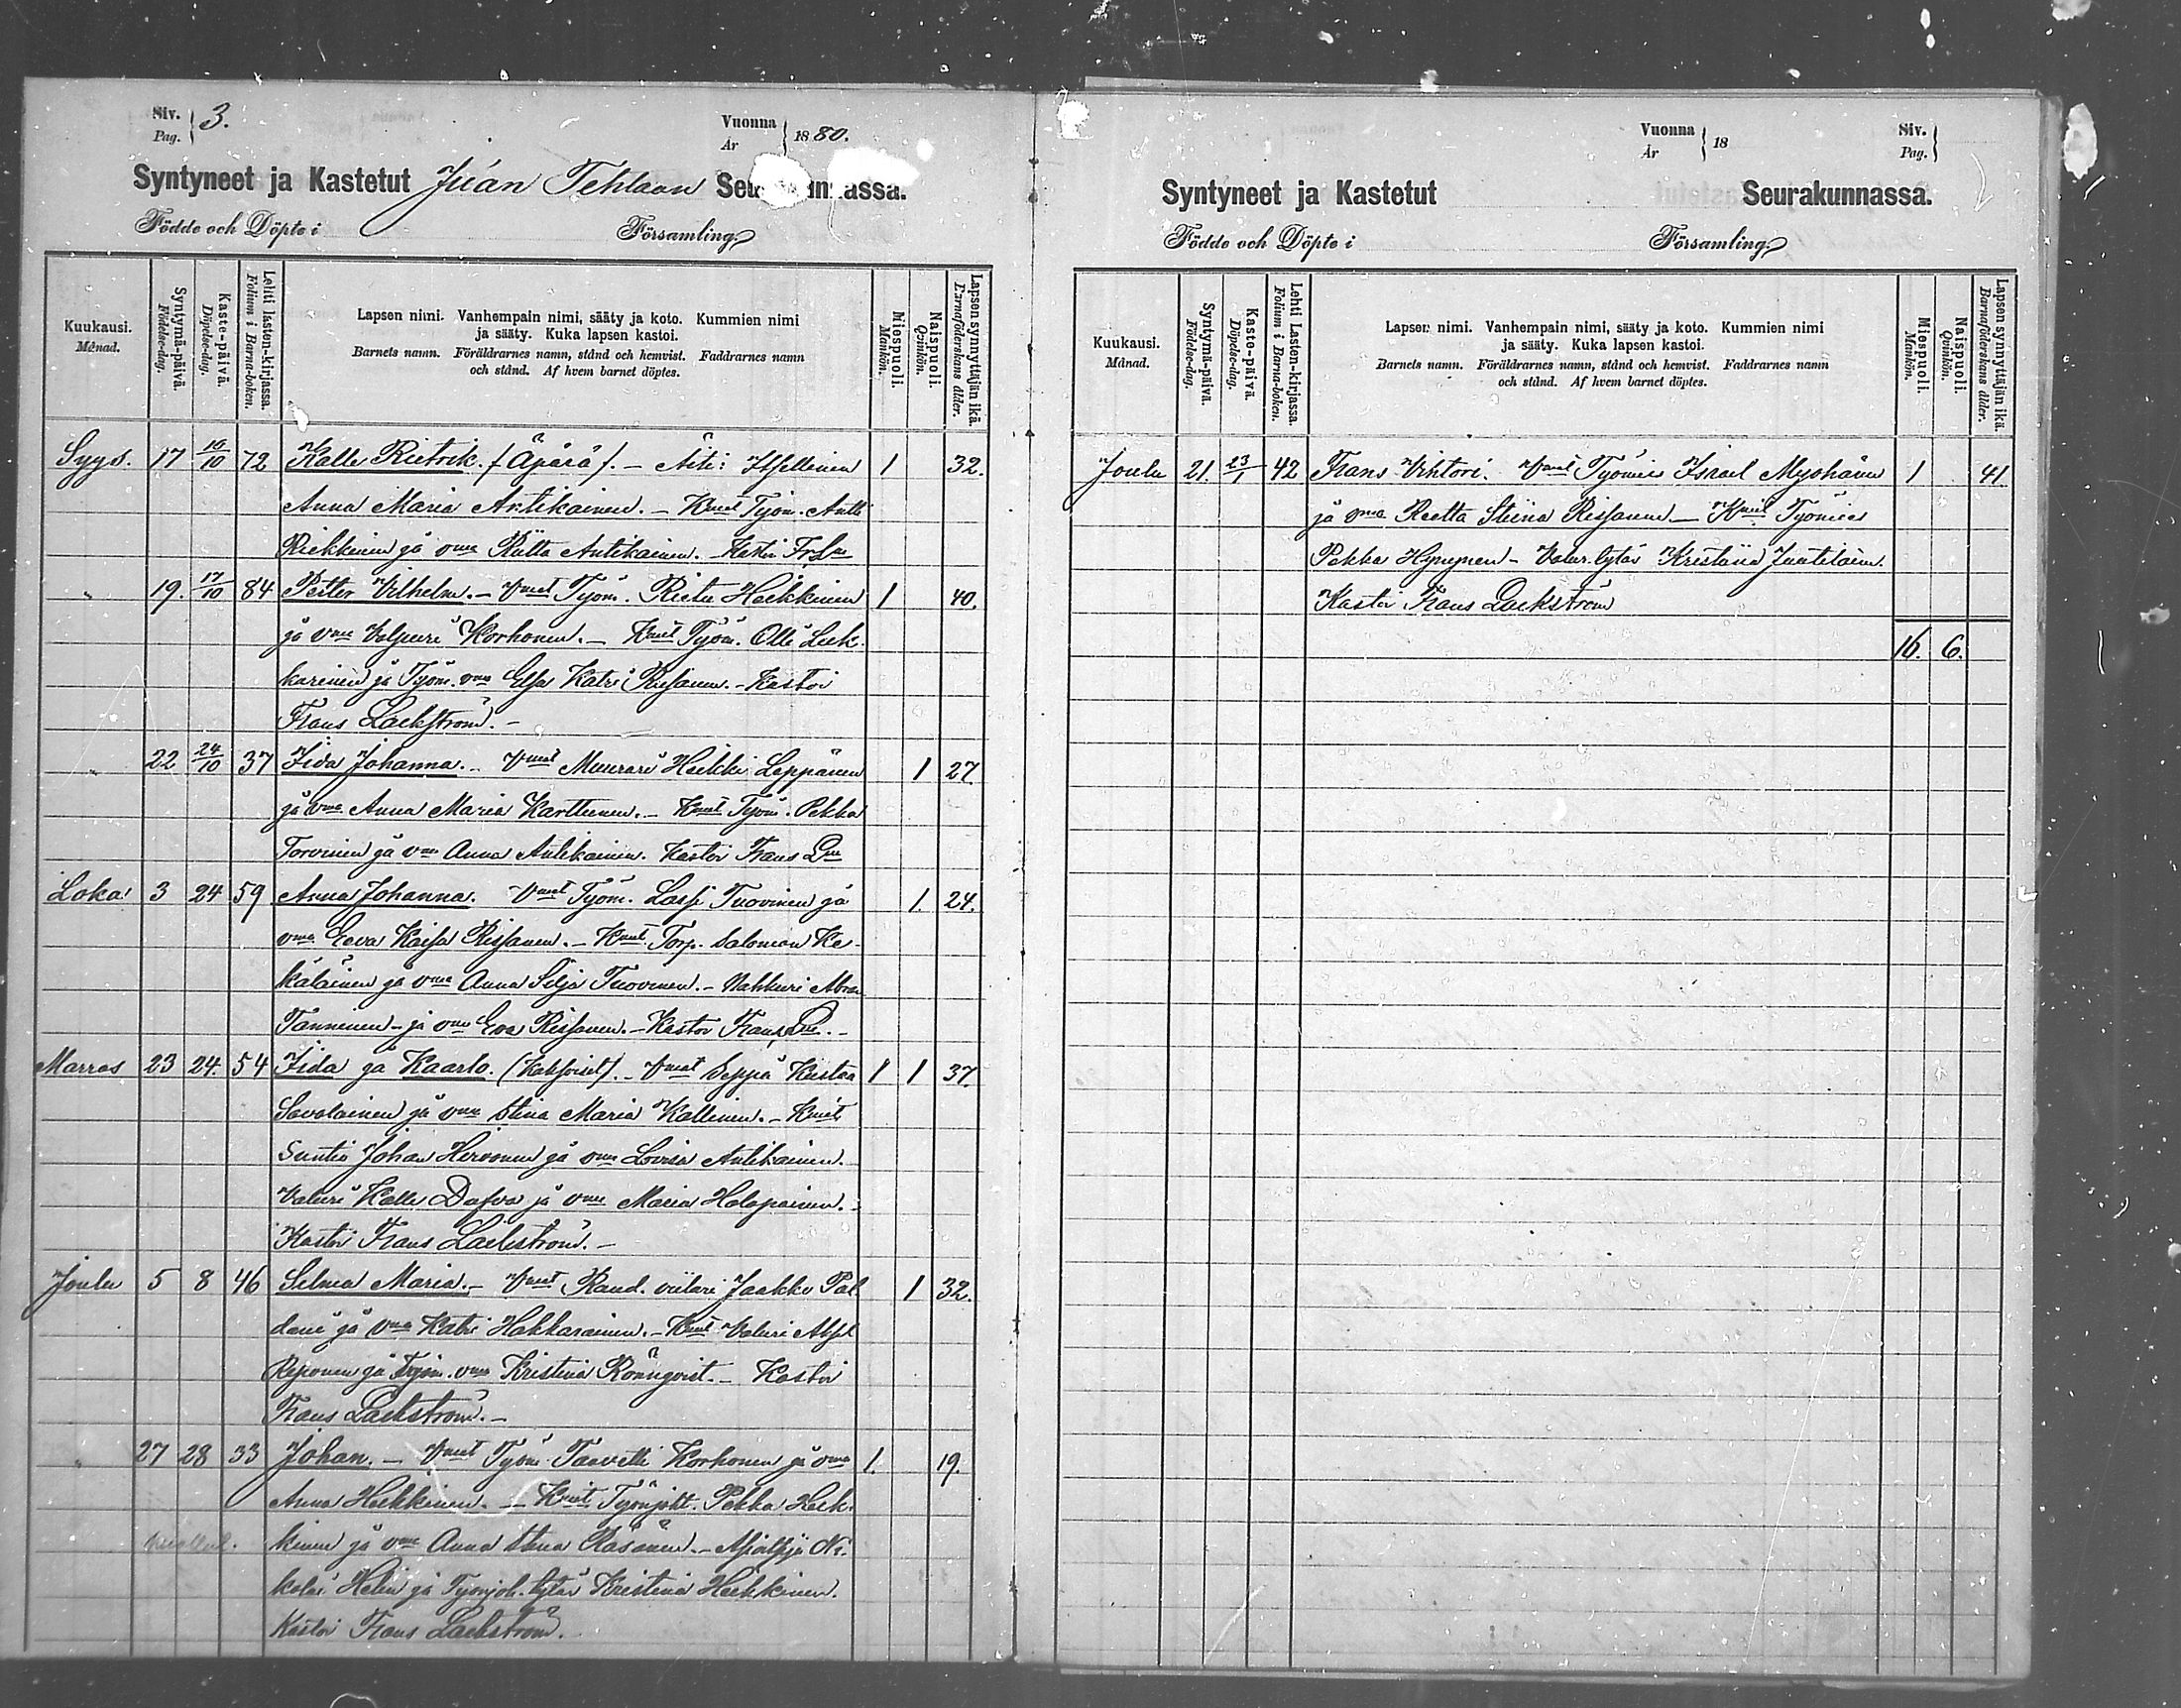 Siv. Pag. 3. Vuonna År 1880.
Syntyneet ja Kastetut Juán Tehtaan Seurakunnassa.
Födde och Döpte i Församling.
Kuukausi. Månad.
Syntymä-päivä. Födelse-dag.
Kaste-päivä. Döpelse-dag.
Lehti lasten-kirjassa. Folium i Barna-boken.
Lapsen nimi. Vanhempain nimi, sääty ja koto. Kummien nimi
ja sääty. Kuka lapsen kastoi.
Barnets namn. Föräldrarnes namn, stånd och hemvist. Faddrarnes namn
och stånd. Af hvem barnet döptes.
Miespuoli. Mankön.
Naispuoli. Qvinkön.
Lapsen synnyttäjän ikä. Barnaföderskans ålder.
Syys. 17 16/10 72 Kalle Rietrik. (Äpärä). - Äiti: Itsellinen 1 32.
Anna Maria Antikainen. - Kmit Työm. Antti
Riekkinen ja vmo Riitta Antikainen. Kastoi Fr. Lm
" 19. 17/10 84 Petter Vilhelm. - Vmat Työm. Rietu Heikkinen 1 40.
ja vmo Valpuri Korhonen. - Kmit Työm. Olli Leek-
karinen ja Työm. vmo Elsa Katri Rissanen. - Kastoi
Frans Lackström. -
" 22 24/10 37 Iida Johanna. - Vmat Muurari Heikki Leppänen 1 27.
ja vmo Anna Maria Karttunen. - Kmit Työm. Pekka
Torvinen ja vmo Anna Antikainen. Kastoi Frans Lm
Loka 3 24 59 Anna Johanna. Vmat Työm. Lassi Tuovinen ja 1. 24.
vmo Eeva Kaisa Rissanen. - Kmit Torp. Salomon Ke-
käläinen ja vmo Anna Silja Tuovinen. - Nahkuri Abra
Tanninen - ja vmo Eva Rissanen. - Kastoi Frans Lm. -
Marras 23 24. 54 Iida ja Kaarlo. (Kaksoiset). - Vmat Seppä Kustaa 1 1 37.
Savolainen ja vmo Stina Maria Kallinen. - Kmit
Suntio Johan Hirvonen ja vmo Lovisa Antikainen.
Valuri Kalle Dafva ja vmo Maria Holopainen. -
Kastoi Frans Lackström. -
Joulu 5 8 46 Selma Maria. - Vmat Raud. viilari Jaakko Pal-
dani ja vmo Katri Hakkarainen. - Kmit Valuri Aksel 1 32.
Reponen ja Työm. vmo Kristina Rönnqvist. - Kastoi
Frans Lackström. -
" 27 28 33 Johan. - Vmat Työm. Taavetti Korhonen ja vmo 1. 19.
Anna Heikkinen. - Kmit Työnjoht. Pekka Heik-
kinen ja vmo Anna Stina Räsänen. - Ni-
kolai Helin ja Työnjoh. tytär Kristina Heikkinen.
Kastoi Frans Lackström.
Vuonna År 18 Siv. Pag.
Syntyneet ja Kastetut Seurakunnassa.
Födde och Döpte i Församling.
Kuukausi. Månad.
Syntymä-päivä. Födelse-dag.
Kaste-päivä. Döpelse-dag.
Lehti Lasten-kirjassa. Folium i Barna-boken.
Lapsen nimi. Vanhempain nimi, sääty ja koto. Kummien nimi
ja sääty. Kuka lapsen kastoi.
Barnets namn. Föräldrarnes namn, stånd och hemvist. Faddrarnes namn
och stånd. Af hvem barnet döptes.
Miespuoli. Mankön.
Naispuoli. Qvinkön.
Lapsen synnyttäjän ikä. Barnaföderskans ålder.
Joulu 21. 23/1 42 Frans Vihtori. Vmat Työmies Israel Myöhänen 1 41.
ja vmo Reetta Stiina Rissanen - Kmit Työmies
Pekka Hynynen - Valur. tytär Kristiina Juutilainen.
Kastoi Frans Lackström
16. 6.